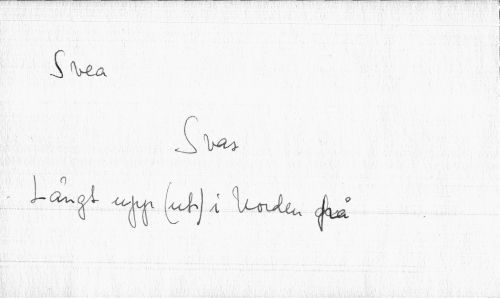 Svea
Svas
Långt upp (ut) i Norden på